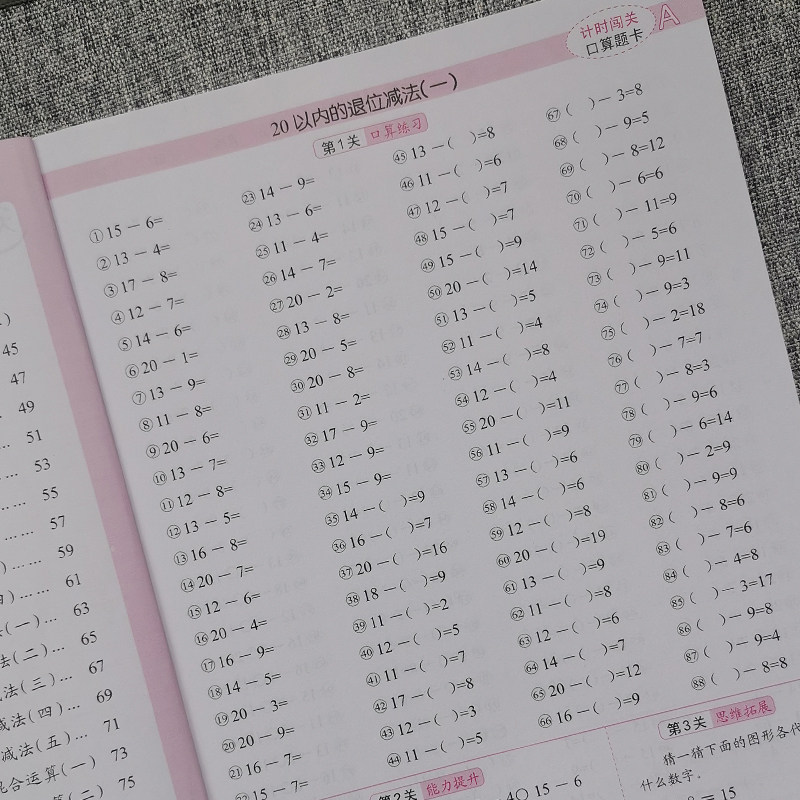 计时闯关
口算题卡
A
20以内的退位减法(一)
第1关 口算练习
①15－6=
②13－4=
③17－8=
④12－7=
⑤14－6=
⑥20－1=
⑦13－9=
⑧11－8=
⑨20－6=
⑩13－7=
⑪12－8=
⑫13－5=
⑬16－8=
⑭20－7=
⑮12－6=
⑯20－4=
⑰16－9=
⑱14－5=
⑲20－3=
⑳20－9=
㉑16－7=
㉒15－7=
㉓14－9=
㉔13－6=
㉕11－4=
㉖14－7=
㉗20－2=
㉘13－8=
㉙20－5=
㉚20－8=
㉛11－2=
㉜17－9=
㉝12－9=
㉞15－9=
㉟14－( )=9
㊱16－( )=7
㊲20－( )=16
㊳18－( )=9
㊴11－( )=2
㊵12－( )=5
㊶11－( )=7
㊷17－( )=8
㊸12－( )=3
㊹11－( )=5
㊺13－( )=8
㊻11－( )=6
㊼12－( )=7
㊽15－( )=7
㊾15－( )=9
㊿20－( )=14
51 13－( )=5
52 11－( )=4
53 14－( )=8
54 12－( )=4
55 20－( )=11
56 11－( )=9
57 13－( )=6
58 14－( )=6
59 12－( )=8
60 20－( )=19
61 13－( )=9
62 11－( )=8
63 12－( )=6
64 14－( )=7
65 20－( )=12
66 16－( )=9
67 ( )－3=8
68 ( )－9=5
69 ( )－8=12
70 ( )－6=6
71 ( )－11=9
72 ( )－5=6
73 ( )－9=11
74 ( )－9=3
75 ( )－2=18
76 ( )－7=7
77 ( )－8=3
78 ( )－9=6
79 ( )－6=14
80 ( )－2=9
81 ( )－9=9
82 ( )－8=6
83 ( )－7=6
84 ( )－4=8
85 ( )－3=17
86 ( )－9=8
87 ( )－9=4
88 ( )－8=8
第2关 能力提升
4○15－6
第3关 思维拓展
猜一猜下面的图形各代
什么数字。
8=15
)
45
47
… 49
… 51
… 53
… 55
…… 57
)…… 59
…… 61
(一)… 63
法(二)… 65
法(三)… 67
减法(四)… 69
减法(五)… 71
混合运算(一) 73
(二) 75